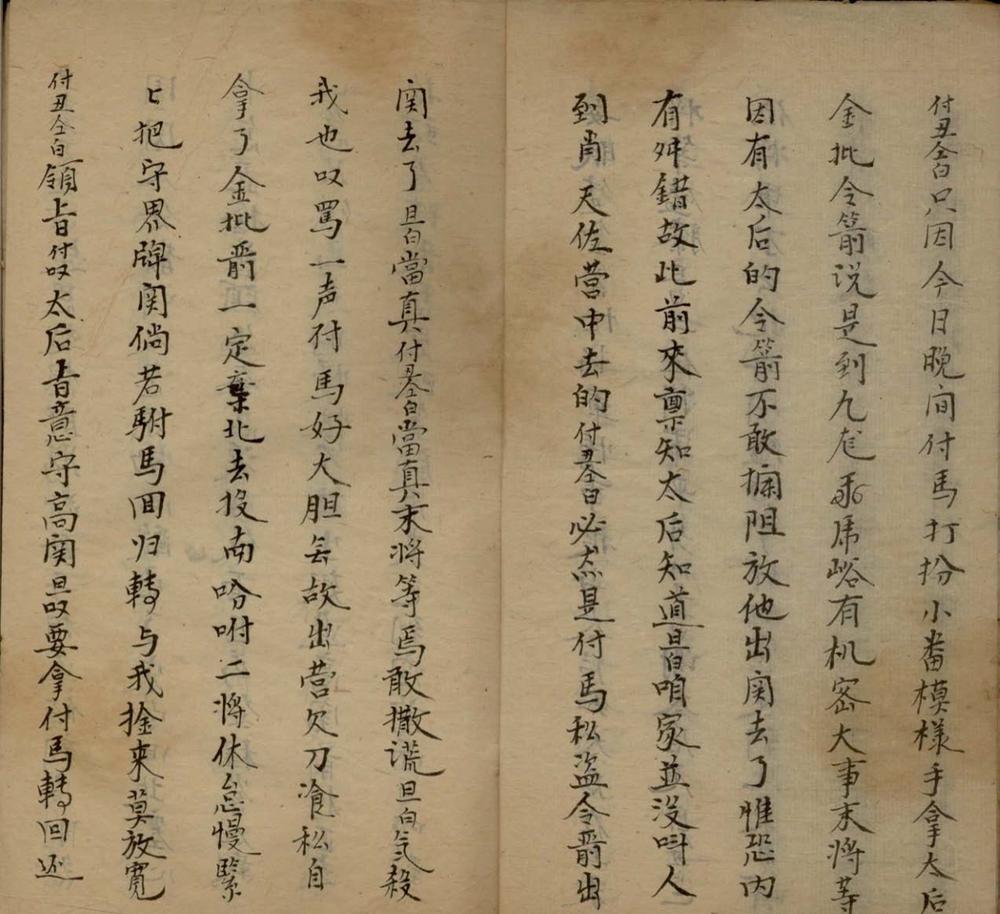 付丑仝白只因今日晚间付馬打扮小畨模樣手拿太后
金批令箭说是到九龙飛虎峪有机密大事末将等
因有太后的令箭不敢拦阻放他出関去了惟恐内
有舛錯故此前來禀知太后知道旦白咱家並没呌人
到肖天佐营中去的付丑仝白必杰是付馬私盗令箭出
関去了旦白當真付丑仝白當真末将等焉敢撒谎旦白气殺
我也叹罵一声付馬好大胆无故出营欠刀飡私自
拿了金批箭一定棄北去投南吩咐二将休怠慢緊
匕把守界牌関倘若駙馬囬归轉与我捦来莫放寛
付丑仝白領旨付叹太后旨意守高関旦叹要拿付馬轉回还